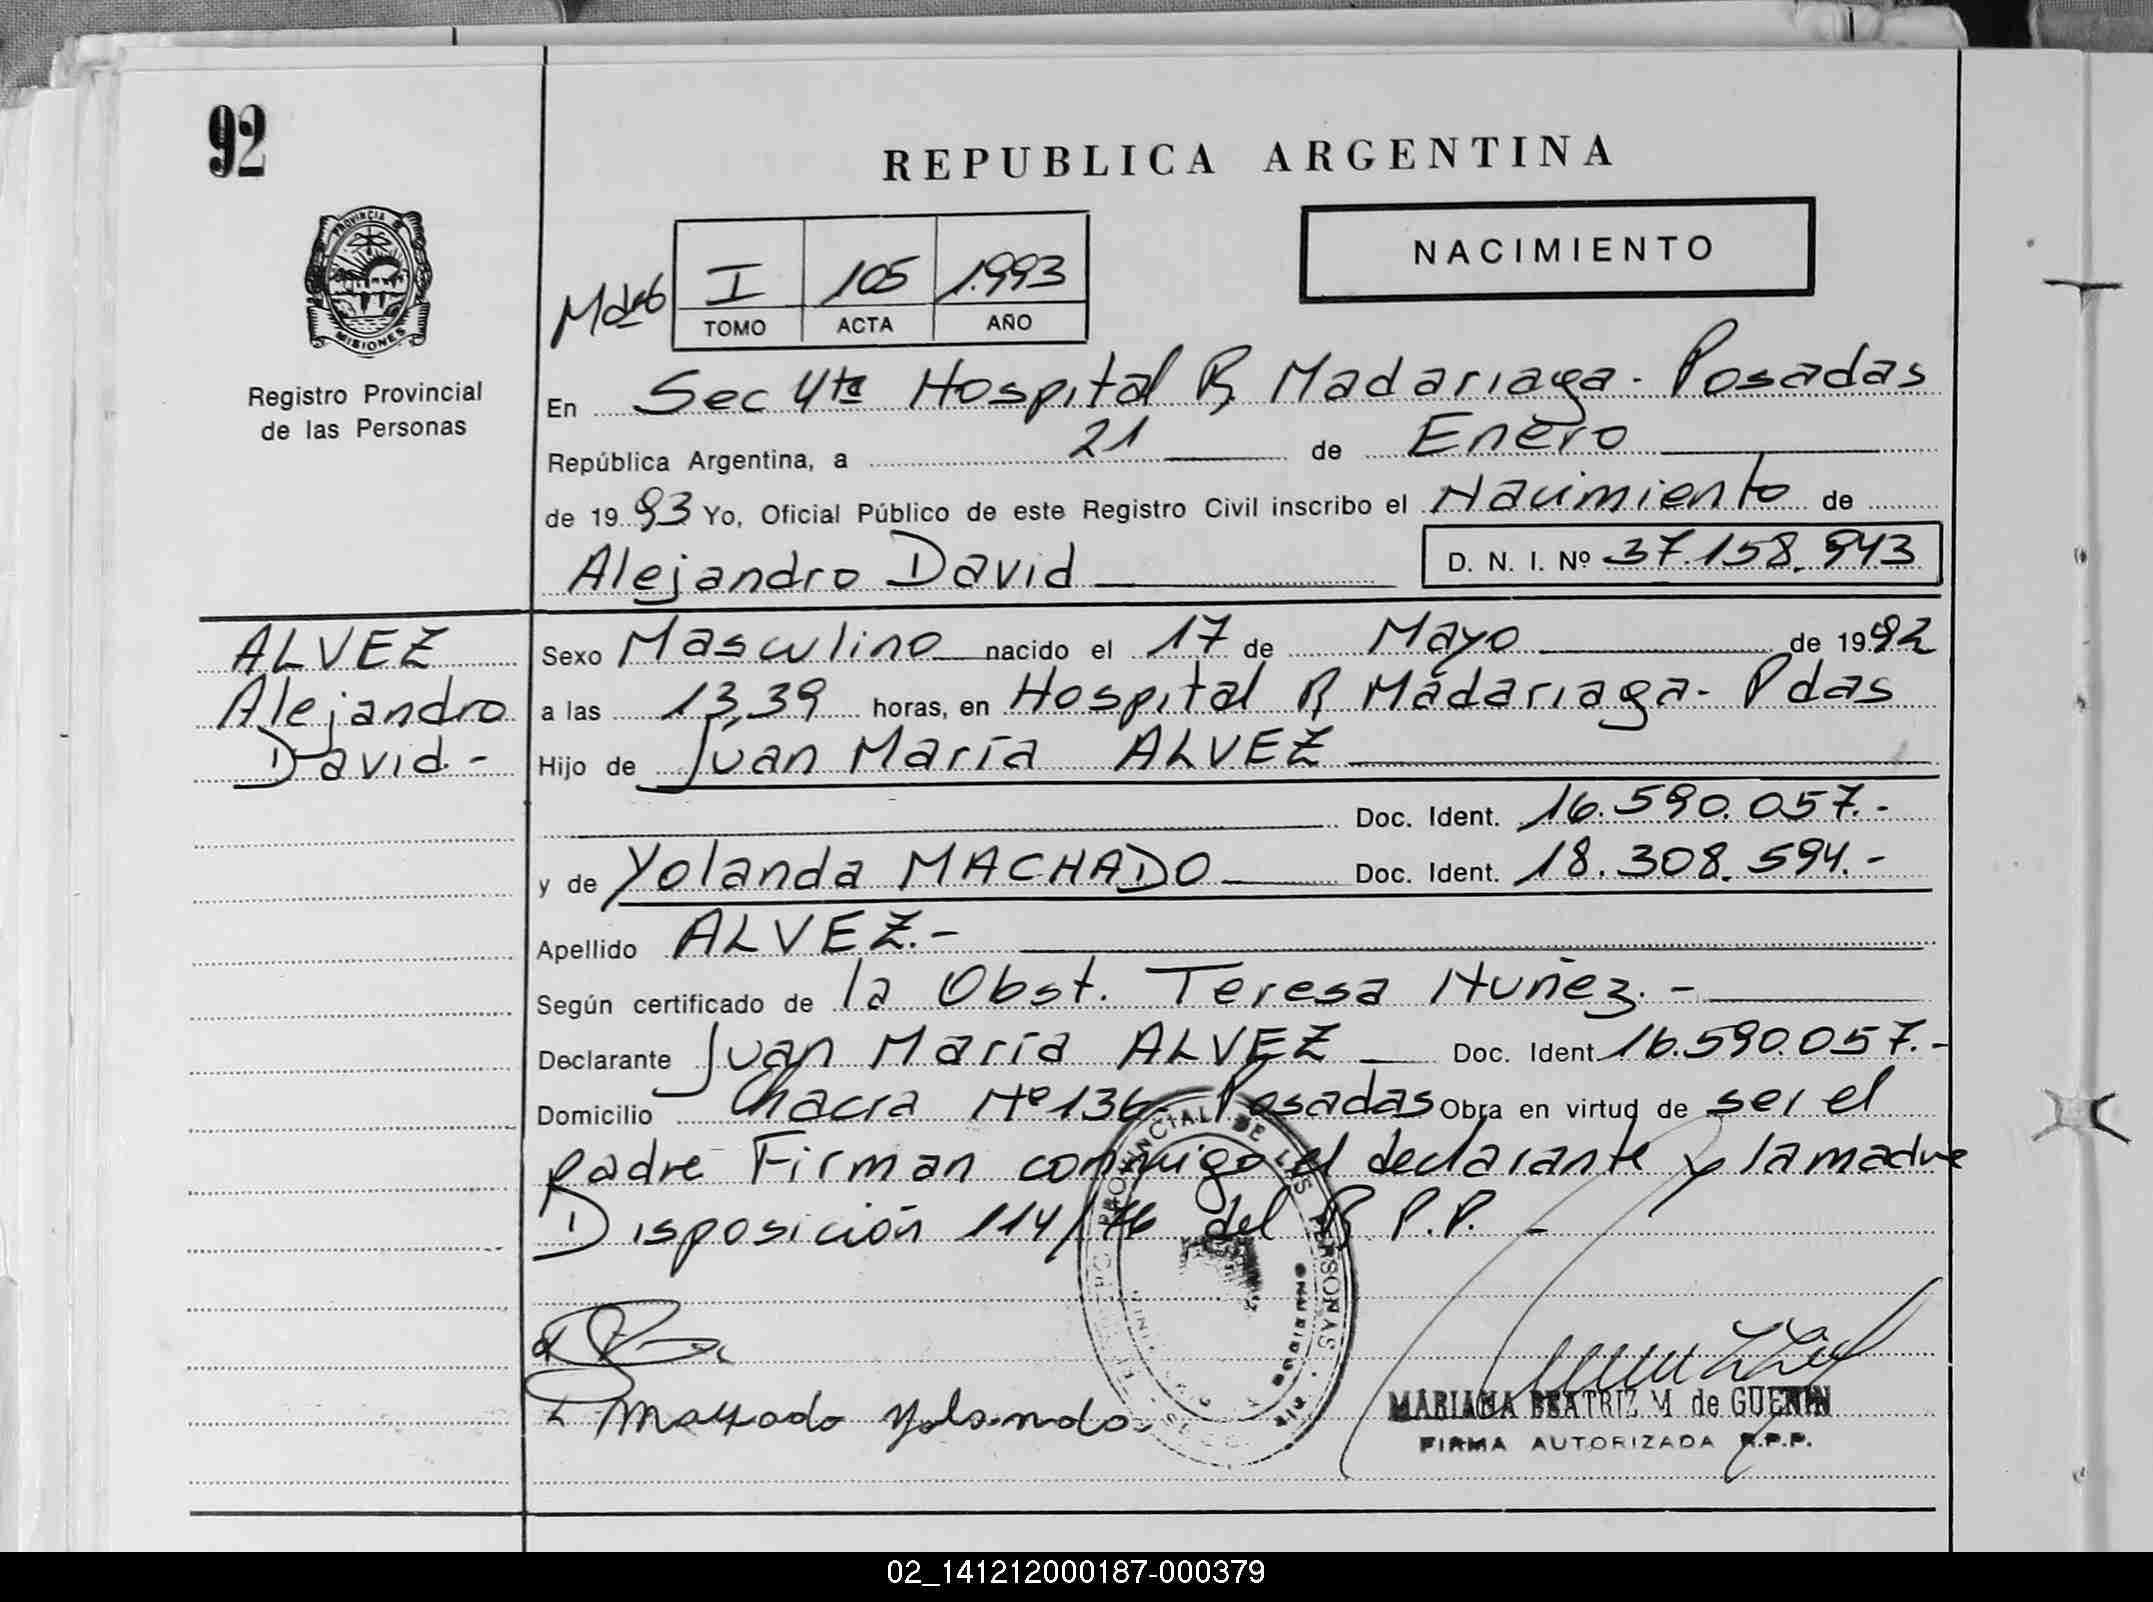 92
REPUBLICA ARGENTINA
NACIMIENTO
I 105 1.993
TOMO ACTA AÑO
PROVINCIA
MISIONES
Registro Provincial
de las Personas
En Sec 4ta Hospital R Madariaga - Posadas
República Argentina, a 21 de Enero
de 1993 Yo, Oficial Público de este Registro Civil inscribo el Nacimiento de
Alejandro David D. N. I. Nº 37.158.943
ALVEZ
Alejandro
David.-
Sexo Masculino nacido el 17 de Mayo de 1992
a las 13,39 horas, en Hospital R Madariaga - Pdas
Hijo de Juan María ALVEZ
Doc. Ident. 16.590.057.-
y de Yolanda MACHADO Doc. Ident. 18.308.594.-
Apellido ALVEZ.-
Según certificado de la Obst. Teresa Nuñez.-
Declarante Juan María ALVEZ Doc. Ident 16.590.057.-
Domicilio Chacra Nº 136- Posadas Obra en virtud de ser el
padre Firman conmigo el declarante y la madre
Disposición 114/76 del R.P.P.-
Machado Yolanda
MARIANA BEATRIZ M de GUENIN
FIRMA AUTORIZADA R.P.P.
02_141212000187-000379